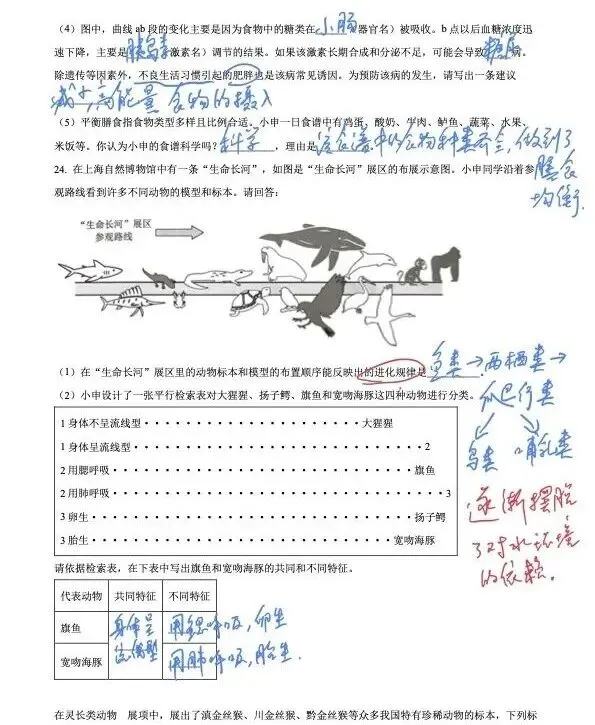 (4)图中，曲线 ab 段的变化主要是因为食物中的糖类在 小肠（器官名）被吸收。b 点以后血糖浓度迅
速下降，主要是 胰岛素（激素名）调节的结果。如果该激素长期合成和分泌不足，可能会导致 糖尿
除遗传等因素外，不良生活习惯引起的肥胖也是该病常见诱因。为预防该病的发生，请写出一条建议
减少高能量食物的摄入
(5)平衡膳食指食物类型多样且比例合适。小申一日食谱中有鸡蛋，酸奶、牛肉、鲈鱼、蔬菜、水果、
米饭等。你认为小申的食谱科学吗？ 科学 ，理由是 该食谱中的食物种类齐全，做到了
膳食
均衡.
24. 在上海自然博物馆中有一条“生命长河”，如图是“生命长河”展区的布展示意图。小申同学沿着参
观路线看到许多不同动物的模型和标本。请回答：
“生命长河”展区
参观路线
(1)在“生命长河”展区里的动物标本和模型的布置顺序能反映出的进化规律是 鱼类→两栖类→
爬行类
鸟类 哺乳类
(2)小申设计了一张平行检索表对大猩猩、扬子鳄、旗鱼和宽吻海豚这四种动物进行分类。
逐渐摆脱
了对水环境
的依赖.
1 身体不呈流线型······大猩猩
1 身体呈流线型······2
2 用鳃呼吸······旗鱼
2 用肺呼吸······3
3 卵生······扬子鳄
3 胎生······宽吻海豚
请依据检索表，在下表中写出旗鱼和宽吻海豚的共同和不同特征。
代表动物 共同特征 不同特征
旗鱼 身体呈流线型 用鳃呼吸，卵生
宽吻海豚 用肺呼吸，胎生.
在灵长类动物 展项中，展出了滇金丝猴、川金丝猴、黔金丝猴等众多我国特有珍稀动物的标本，下列标